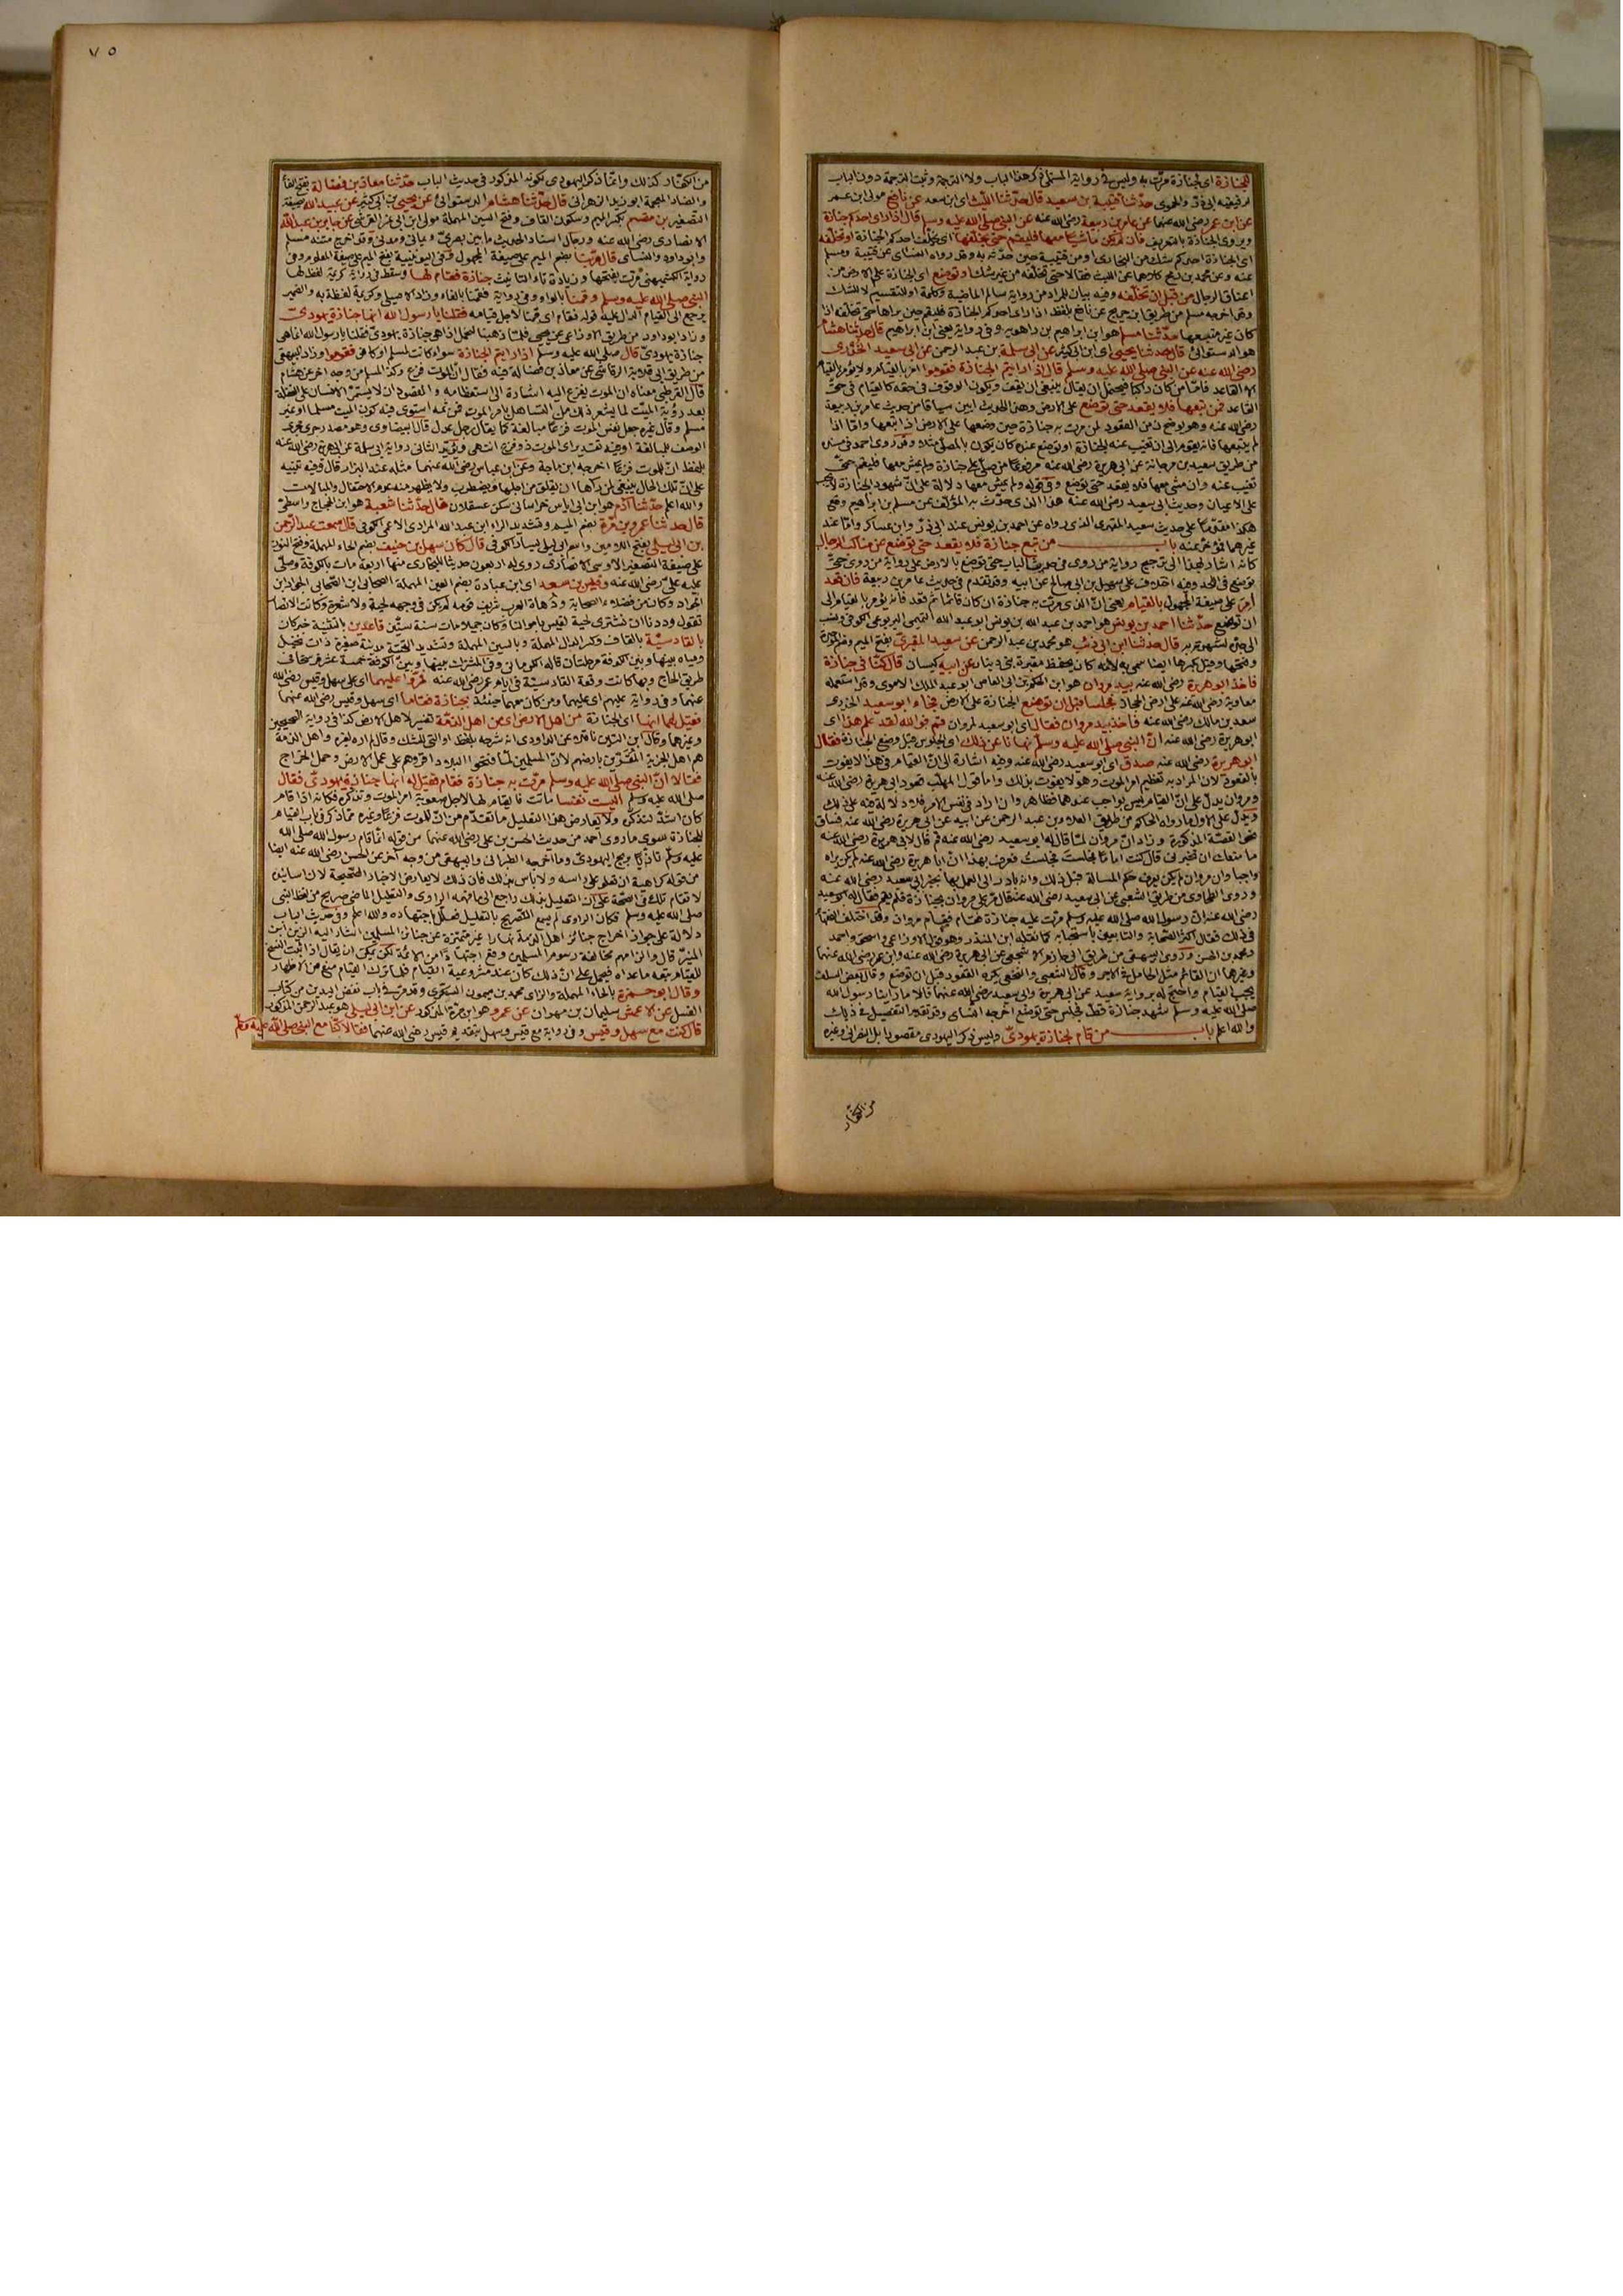 للجنازة اى لجنازة مرّت به وليس فى رواية المستملى ذكر هذا الباب ولا الترجمة وثبت الترجمة دون الباب
لرفيقيه ابى ذر والحموى حدّثنا قتيبة بن سعيد قال حدّثنا الليث اى ابن سعد عن نافع مولى ابن عمر
عن ابن عمر رضى الله عنهما عن عامر بن ربيعة رضى الله عنه عن النبى صلى الله عليه وسلم قال اذا راى احدكم جنازة
ويروى الجنازة بالتعريف فان لم يكن ماشيًا معها فليقم حتى يخلفها اى يخلف احدكم الجنازة او تخلّفه
اى الجنازة احدكم شك من البخارى او من قتيبة حين حدّثه به وقد رواه النسائى عن قتيبة ومسلم
عنه وعن محمد بن رمح كلاهما عن الليث فقالا حتى تخلفه من غير شك او توضع اى الجنازة على الارض من
اعناق الرجال من قبل ان تخلّفه وفيه بيان للمراد من رواية سالم الماضية وكلمة او للتقسيم لا للشك
وقد اخرجه مسلم من طريق ابن جريج عن نافع بلفظ اذا راى احدكم الجنازة فليقم حين يراها حتى تخلفه اذا
كان غير متبعها حدّثنا مسلم هو ابن ابراهيم بن راهويه وفى رواية يعنى ابن ابراهيم قال حدّثنا هشام
هو الدستوائى قال حدثنا يحيى اى ابن ابى كثير عن ابى سلمة بن عبد الرحمن عن ابى سعيد الخدرى
رضى الله عنه عن النبى صلى الله عليه وسلم قال اذا رايتم الجنازة فقوموا امر بالقيام ولا يؤمر بالقيام
الا القاعد فامّا من كان راكبا فيحتمل ان يقال ينبغى ان يقف ويكون الوقوف فى حقه كالقيام فى حق
القاعد فمن تبعها فلا يقعد حتى توضع على الارض وهذا الحديث ابين سياقا من حديث عامر بن ربيعة
رضى الله عنه وهو يوضح ان من القعود لمن مرت به جنازة حين وضعها على الارض اذا تبعها واما اذا
لم يتبعها فانه يقوم الى ان تغيب عنه الجنازة او توضع عنده كان يكون بالمصلى مثلا وقد روى احمد فى مسنده
من طريق سعيد بن مرجانة عن ابى هريرة رضى الله عنه مرفوعًا من صلّى على جنازة ولم يمش معها فليقم حتى
تغيب عنه وان مشى معها فلا يقعد حتى توضع وفى قوله ولم يمش معها دلالة على انّ شهود الجنازة لا يجب
على الاعيان وحديث ابى سعيد رضى الله عنه هذا الذى حدّث به المؤلف عن مسلم بن ابراهيم وقع
هكذا مقدّما على حديث سعيد المقبرى الذى رواه عن احمد بن يونس عند ابى ذرّ وابن عساكر وامّا عند
غيرهما فمؤخر عنه باب من تبع جنازة فلا يقعد حتى توضع عن مناكب الرجال
كانه اشار بهذا الى ترجيح رواية من روى فى حديث الباب حتى توضع بالارض على رواية من روى حتى
توضع فى اللحد وفيه اختلاف على سهيل بن ابى صالح عن ابيه وقد تقدم فى حديث عامر بن ربيعة فان قعد
اُمِر على صيغة المجهول بالقيام يعنى انّ الذى مرّت به جنازة ان كان قائما ثم قعد فانه يؤمر بالقيام الى
ان توضع حدّثنا احمد بن يونس هو احمد بن عبد الله بن يونس ابو عبد الله التميمى اليربوعى الكوفى ونسب
الى جدّه لشهرته به قال حدثنا ابن ابى ذئب هو محمد بن عبد الرحمن عن سعيد المقبرىّ بفتح الميم وضم الموحدة
وفتحها وقيل بكسرها ايضا سمى به لانه كان يحفظ مقبرة بنى دينار عن ابيه كيسان قال كنّا فى جنازة
فاخذ ابو هريرة رضى الله عنه بيد مروان هو ابن الحكم بن ابى العاص ابو عبد الملك الاموى وقد استعمله
معاوية رضى الله عنه على ارض الحجاز فجلسا قبل ان توضع الجنازة على الارض فجاء ابو سعيد الخدرى
سعد بن مالك رضى الله عنه فاخذ بيد مروان فقال اى ابو سعيد لمروان قم فوالله لقد علم هذا اى
ابو هريرة رضى الله عنه انّ النبى صلى الله عليه وسلم نهانا عن ذلك اى الجلوس قبل وضع الجنازة فقال
ابو هريرة رضى الله عنه صدق اى ابو سعيد رضى الله عنه وفيه اشارة الى انّ القيام فى هذا لا يفوت
بالقعود لان المراد به تعظيم امر الموت وهو لا يفوت بذلك واما قول المهلب قعود ابى هريرة رضى الله عنه
ومروان يدل على انّ القيام ليس بواجب عندهما فظاهر وان اراد فى نفس الامر فلا دلالة فيه على ذلك
ويدلّ على الاول ما رواه الحاكم من طريق العلاء بن عبد الرحمن عن ابيه عن ابى هريرة رضى الله عنه فساق
نحو القصّة المذكورة وزاد انّ مروان لما قال له ابو سعيد رضى الله عنه قم قال لابى هريرة رضى الله عنه
ما منعك ان تخبرنى قال كنت اماما فجلست فجلستُ فعرف بهذا انّ ابا هريرة رضى الله عنه لم يكن يراه
واجبا وان مروان لم يكن يعرف حكم المسالة قبل ذلك وانه بادر الى العمل بها بخبر ابى سعيد رضى الله عنه
وروى الطحاوى من طريق الشعبى عن ابى سعيد رضى الله عنه قال مُرّ على مروان بجنازة فلم يقم فقال له ابو سعيد
رضى الله عنه ان رسول الله صلى الله عليه وسلم مرّت عليه جنازة فقام فقام مروان وقد اختلف الفقهاء
فى ذلك فقال اكثر الصحابة والتابعين باستحبابه كما نقله ابن المنذر وهو قول الاوزاعى واسحق واحمد
ومحمد بن الحسن وروى البيهقى من طريق ابى حازم الاشجعى عن ابى هريرة رضى الله عنه وابن عمر رضى الله عنهما
وغيرهما ان القائم مثل الحامل فى الاجر وقال الشعبى والنخعى يكره القعود قبل ان توضع وقال بعض السلف
يجب القيام واحتج له برواية سعيد عن ابى هريرة وابى سعيد رضى الله عنهما قالا ما راينا رسول الله
صلى الله عليه وسلم شهد جنازة قط فجلس حتى توضع اخرجه النسائى وقد تقدم التفصيل فى ذلك
والله اعلم باب من قام لجنازة يهودىّ وليس ذكر اليهودى مقصورا بل النصرانى وغيره
من الكفّار
٧٥
من الكفّار كذلك وانّما ذكر اليهودى لكونه المذكور فى حديث الباب حدّثنا معاذ بن فضالة بفتح الفاء
والضاد المعجمة ابو زيد الزهرانى قال حدّثنا هشام الدستوائى عن يحيى بن ابى كثير عن عبيد الله بصيغة
التصغير بن مقسم بكسر الميم وسكون القاف وفتح السين المهملة مولى ابن ابى نمر القرشى عن جابر بن عبد الله
الانصارى رضى الله عنه ورجال اسناد الحديث ما بين بصرىّ ويمانى ومدنى وقد اخرج متنه مسلم
وابو داود والنسائى قال مُرّ بنا بضم الميم على صيغة المجهول وفى اليونينية بفتح الميم على صيغة المعلوم وفى
رواية الكشميهنى مرّت بفتحها وزيادة تاء التانيث جنازة فقام لها وسقط فى رواية كريمة لفظ لها
النبى صلى الله عليه وسلم وقمنا بالواو وفى رواية فقمنا بالفاء وزاد الاصيلى وكريمة لفظة به والضمير
يرجع الى القيام الدال عليه قوله فقام اى قمنا لاجل قيامه فقلنا يا رسول الله انها جنازة يهودىّ
وزاد ابو داود من طريق الاوزاعى عن يحيى فلمّا ذهبنا لنحمل اذا هى جنازة يهودىّ فقلنا يا رسول الله انما هى
جنازة يهودىّ قال صلى الله عليه وسلم اذا رايتم الجنازة سواء كانت لمسلم او كافر فقوموا وزاد البيهقى
من طريق ابى قلابة الرقاشى عن معاذ بن فضالة فيه فقال انّ الموت فزع وكذا لمسلم من وجه اخر عن هشام
قال القرطبى معناه ان الموت يفزع اليه اشارة الى استعظامه والمقصود ان لا يستمرّ الانسان على الغفلة
بعد رؤية الميّت لما يشعر ذلك من التساهل بامر الموت فمن ثمه استوى فيه كون الميت مسلما او غير
مسلم وقال غيره جعل نفس الموت فزعًا مبالغة كما يقال رجل عدل قال البيضاوى وهو مصدر جرى مجرى
الوصف للمبالغة او فيه تقدير اى الموت ذو فزع انتهى ويؤيّد الثانى رواية ابى سلمة عن ابى هريرة رضى الله عنه
بلفظ انّ للموت فزعًا اخرجه ابن ماجة وعن ابن عباس رضى الله عنهما مثله عند البزار قال وفيه تنبيه
على انّ تلك الحال ينبغى لمن رآها ان يقلق من اجلها ويضطرب ولا يظهر منه عدم الاحتفال والمبالات
والله اعلم حدّثنا آدم هو ابن ابى اياس خراسانى سكن عسقلان قال حدّثنا شعبة هو ابن الحجاج واسطىّ
قال حدثنا عمرو بن مُرّة بضم الميم وتشديد الراء ابن عبد الله المرادى الاعمى الكوفى قال سمعت عبد الرحمن
بن ابى ليلى بفتح اللامين واسم ابى ليلى يسار الكوفى قال كان سهل بن حنيف بضم الحاء المهملة وفتح النون
على صيغة التصغير الاوسى الانصارى روى له اربعون حديثا للبخارى منها اربعة مات بالكوفة وصلّى
عليه علىّ رضى الله عنه وقيس بن سعد اى ابن عبادة بضم العين المهملة الصحابى ابن الصحابى الجواد ابن
الجواد وكان من فضلاء الصحابة ودُهاة العرب شريف قومه لم يكن فى وجهه لحية ولا شعرة وكانت الانصار
تقول وددنا ان نشترى لحية لقيس باموالنا وكان جميلا مات سنة ستّين قاعدين بالتثنية خبر كان
بالقادسيّة بالقاف وكسر الدال المهملة وبالسين المهملة وتشديد التحتيّة مدينة صغيرة ذات نخيل
ومياه بينها وبين الكوفة مرحلتان قاله الكرمانى وفى المشترك بينها وبين الكوفة خمسة عشر فرسخا فى
طريق الحاج وبها كانت وقعة القادسيّة فى ايام عمر رضى الله عنه فمرّوا عليهما اى على سهل وقيس رضى الله
عنهما وفى رواية عليهم اى عليهما ومن كان معهما حينئذ بجنازة فقاما اى سهل وقيس رضى الله عنهما
فقيل لهما انها اى الجنازة من اهل الارض اى من اهل الذمّة تفسير لاهل الارض كذا فى رواية الصحيحين
وغيرهما وقال ابن التين ناقلا عن الداودى انه شرحه بلفظ او التى للشك وقال لم اره لغيره واهل الذمّة
هم اهل الجزية المقرّين بارضهم لانّ المسلمين لمّا فتحوا البلاد اقروهم على عمل الارض وحمل الخراج
فقالا انّ النبى صلى الله عليه وسلم مرّت به جنازة فقام فقيل له انها جنازة يهودىّ فقال
صلى الله عليه وسلم اليست نفسا ماتت فالقيام لها لاجل صعوبة امر الموت وتذكّره فكانه اذا قام
كان اشدّ لتذكّره ولا يعارض هذا التعليل ما تقدّم من انّ للموت فزعًا وغيره ممّا ذكر فى باب القيام
للجنازة سوى ما روى احمد من حديث الحسن بن على رضى الله عنهما من قوله انّما قام رسول الله صلى الله
عليه وسلم تاذّيًا بريح اليهودى وما اخرجه الطبرانى والبيهقى من وجه آخر عن الحسن رضى الله عنه ايضا
من قوله كراهية ان تعلو على راسه ولا باس بذلك فان ذلك لا يعارض الاخبار الصحيحة لان اسانيد
لا تقام تلك فى الصحّة على ان التعليل بذلك راجع الى ما فهمه الراوى والتعليل الماضى صريح من لفظ النبى
صلى الله عليه وسلم فكان الراوى لم يسمع التصريح بالتعليل فعلّل باجتهاده والله اعلم وفى حديث الباب
دلالة على جواز اخراج جنائز اهل الذمة نهارا غير متميّزة عن جنائز المسلمين اشار اليه الزين ابن
المنيّر قال والزامهم مخالفة رسوم المسلمين وقع اجتهادًا من الائمة لكن يمكن ان يقال اذا ثبت النسخ
للقيام تبعه ما عداه فيحمل على انّ ذلك كان عند مشروعية القيام فلما ترك القيام منع من الاظهار
وقال ابو حمزة بالحاء المهملة والزاى محمد بن ميمون السكرى وقد مرّ فى باب نفض اليدين من كتاب
الغسل عن الاعمش سليمان بن مهران عن عمرو هو ابن مرّة المذكور عن ابن ابى ليلى هو عبد الرحمن المذكور
قال كنت مع سهل وقيس وفى رواية مع قيس وسهل بتقديم قيس رضى الله عنهما فقالا كنّا مع النبى صلى الله عليه وسلم